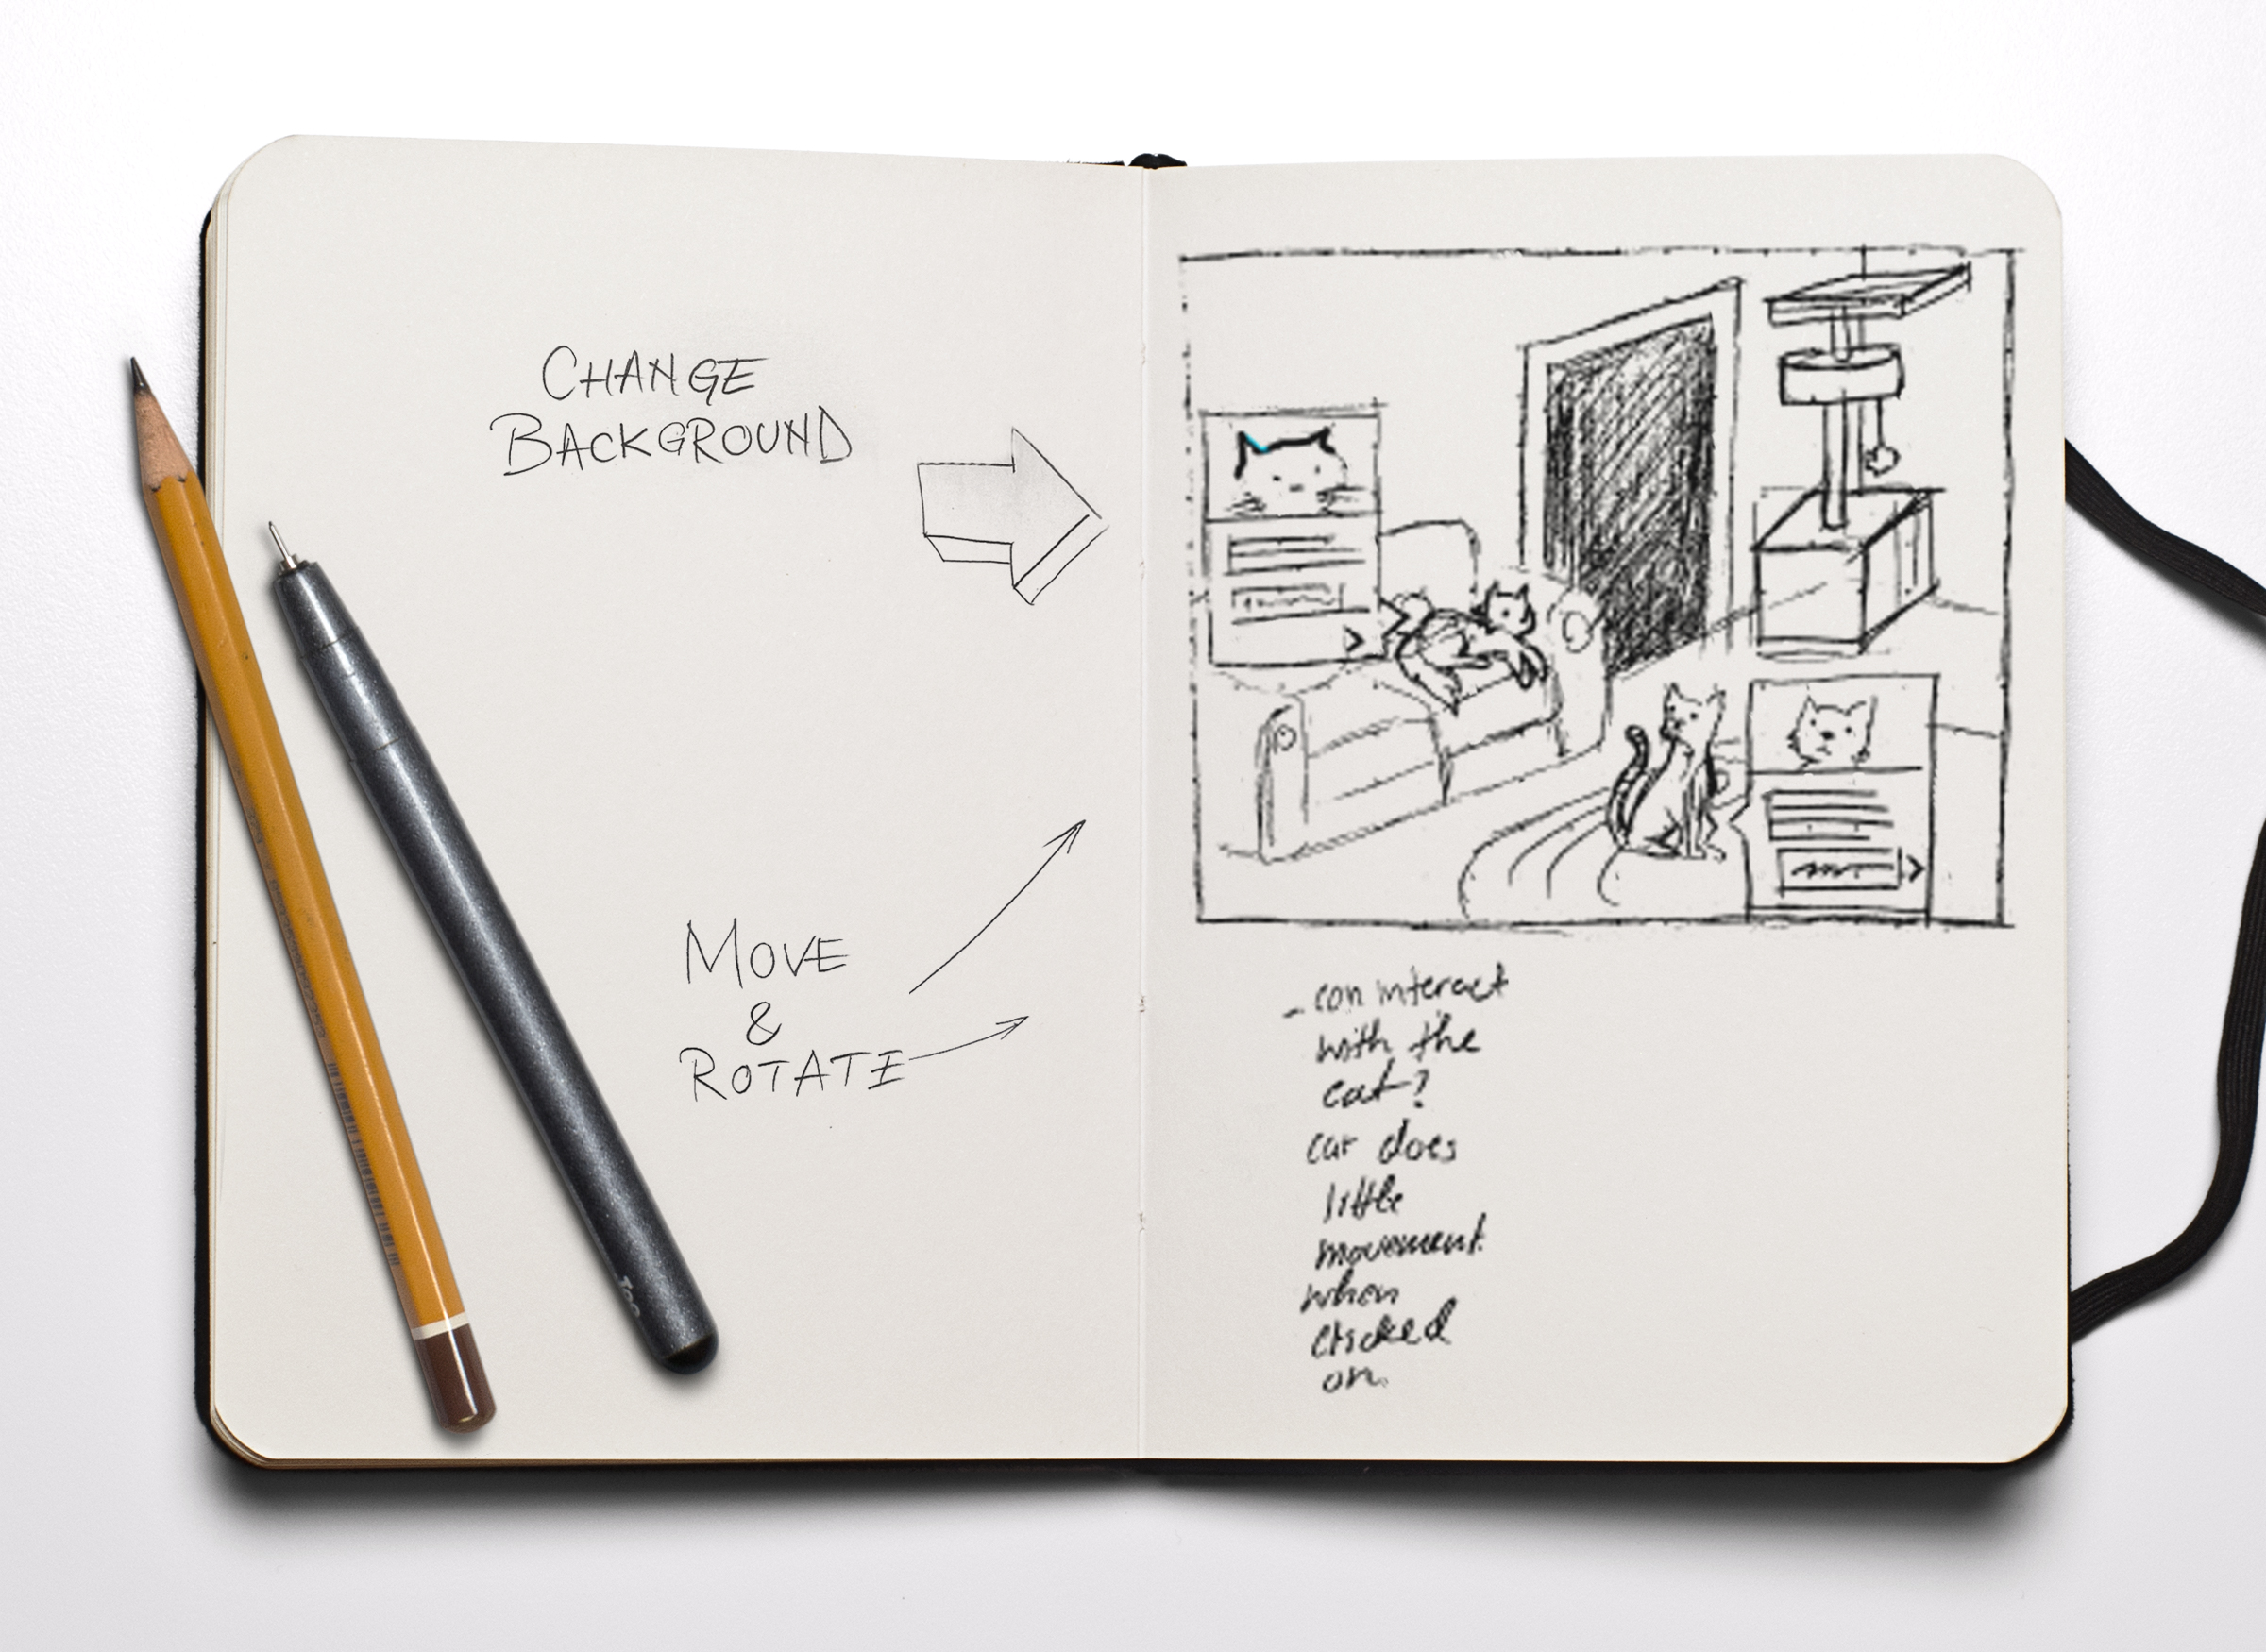 CHANGE
BACKGROUND
MOVE
&
ROTATE
- can interact
with the
cat?
car does
little
movement
when
clicked
on.
Too